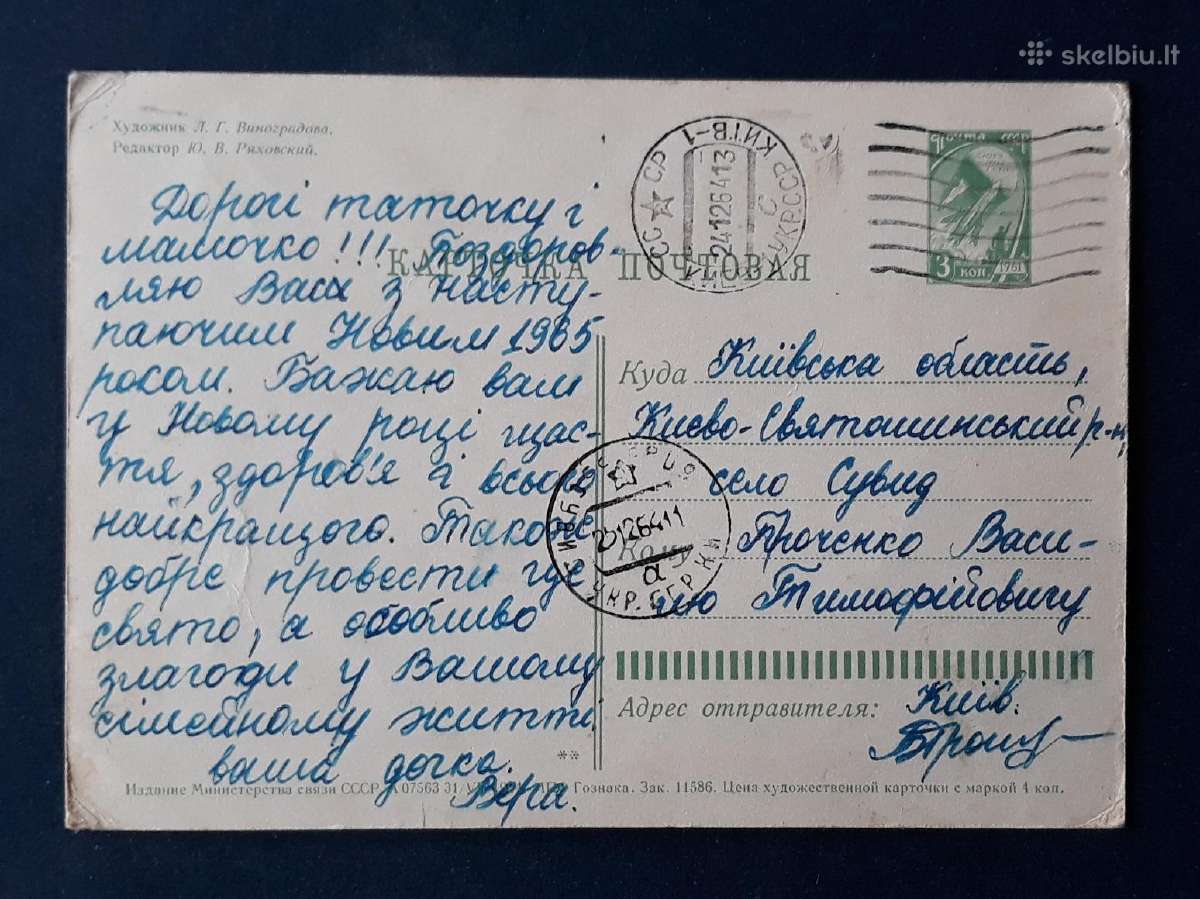 skelbiu.lt
Художник Л. Г. Виноградова.
Редактор Ю. В. Ряховский.
КАРТОЧКА ПОЧТОВАЯ
Почта СССР
3 коп 1961
СССР
УКРССР КИІВ-1
24126413
Дорогі таточку і
мамочко!!! Поздоров-
ляю Вас з насту-
паючим Новим 1965
роком. Бажаю вам
у Новому році щас-
тя, здоров'я і всього
найкращого. Також
добре провести це
свято, а особливо
злагоди у Вашому
сімейному житті.
ваша дочка.
Вера.
Куда Київська область,
Києво-Святошинський р-н,
село Сувид
Кому Проченко Васи-
лю Тимофійовичу
УКР. ССР
Адрес отправителя: Київ.
Издание Министерства связи СССР. Гознака. Зак. 11586. Цена художественной карточки с маркой 4 коп.